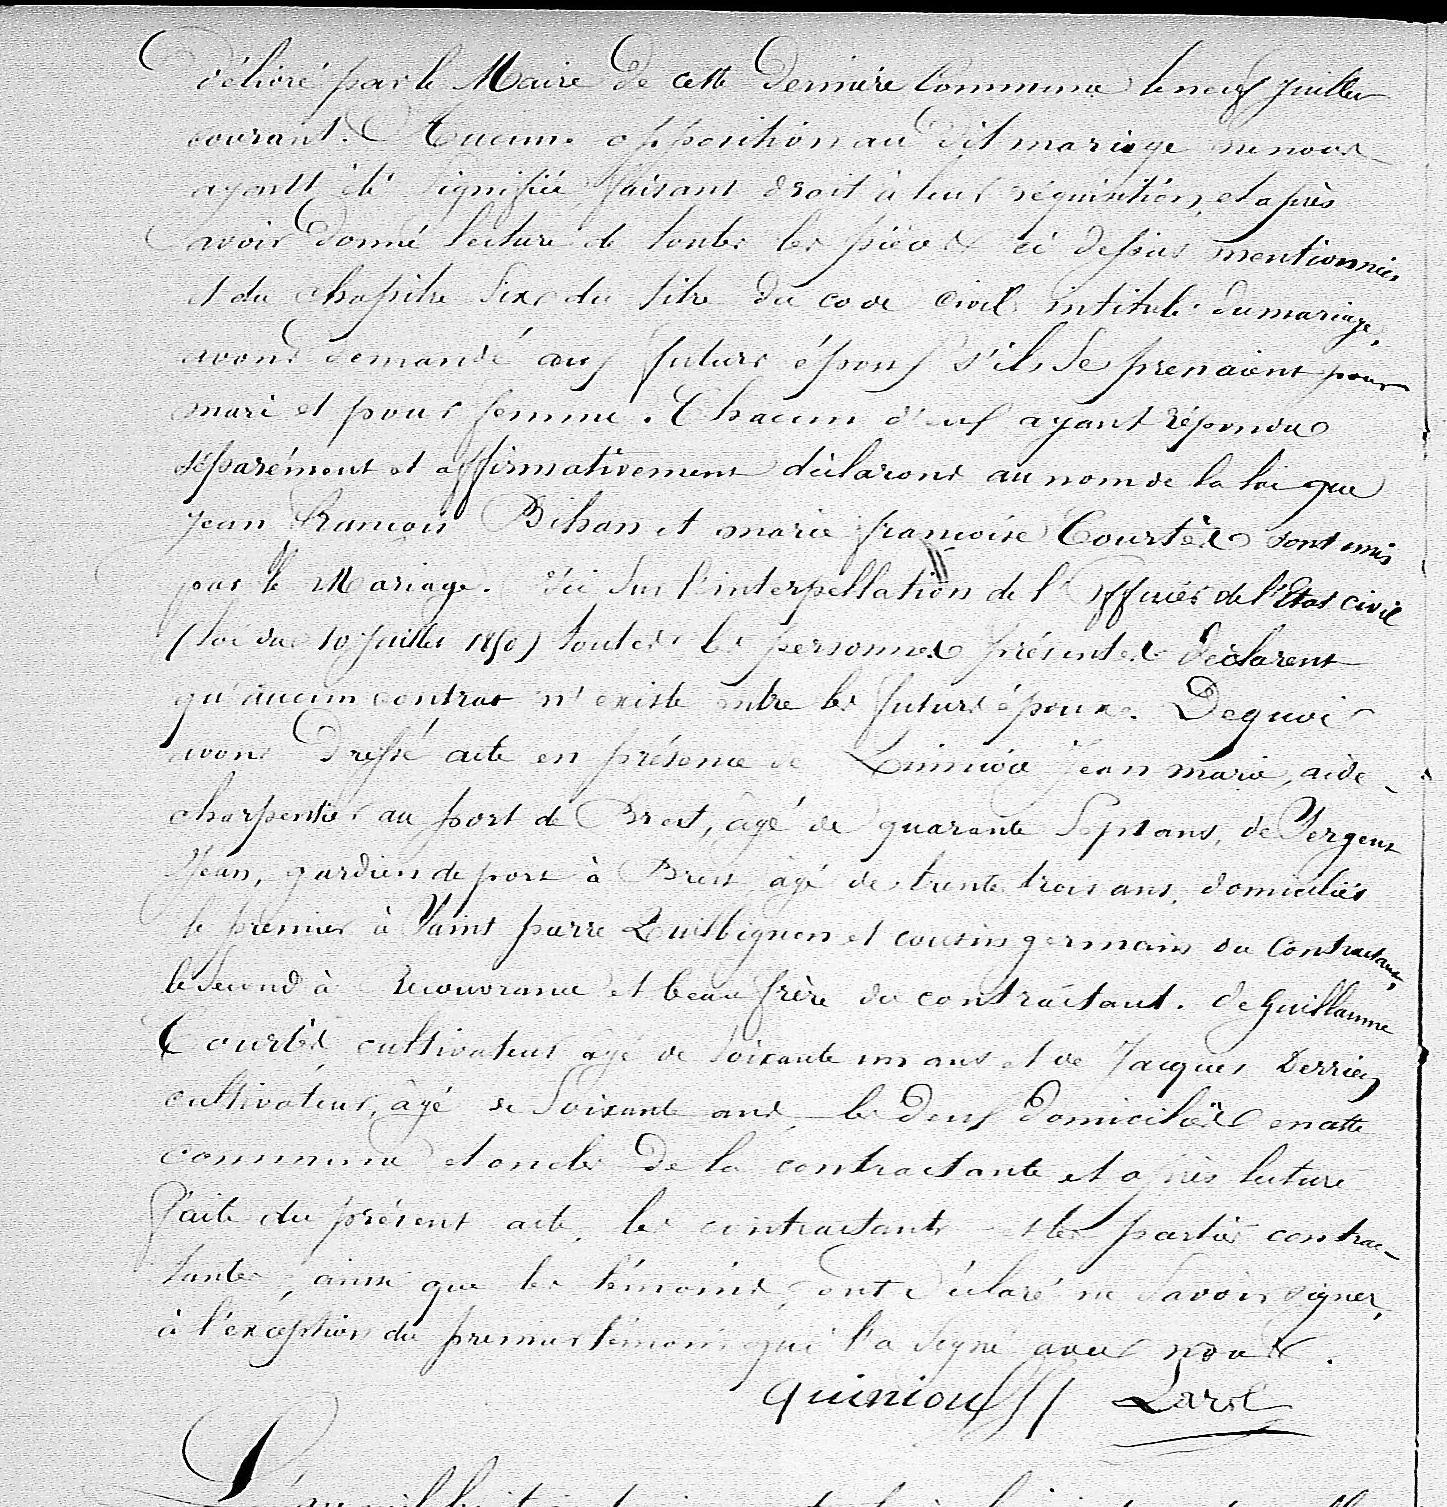 délivré par le Maire de cette dernière Commune le neuf juillet
courant. Aucune opposition au dit mariage ne nous
ayant été signifiée, faisant droit à leur réquisition, et après
avoir donné lecture de toutes les pièces ci dessus mentionnées
et du chapitre six du titre du code civil intitulé du mariage,
avons demandé aux futurs époux s'ils se prenaient pour
mari et pour femme. Chacun d'eux ayant répondu
séparément et affirmativement déclarons au nom de la loi que
Jean François Bihan et marie françoise Courtès sont unis
par le Mariage. Ici sur l'interpellation de l'officier de l'Etat civil
(loi du 10 juillet 1850) toutes les personnes présentes déclarent
qu'aucun contrat n'existe entre les futurs époux. De quoi
avons dressé acte en présence de Jean marie, aide
charpentier au port de Brest, âgé de quarante sept ans, de Pergent
Jean, gardien de port à Brest âgé de trente trois ans, domiciliés
le premier à Saint pierre Quilbignon et cousin germain du contractant,
le second à Recouvrance et beau frère du contractant. de Guillaume
Courtès, cultivateur âgé de soixante un ans et de Jacques Derrien
cultivateur, âgé de soixante ans, les deux domiciliés en cette
commune et oncles de la contractante et après lecture
faite du présent acte, les contractants et les parties contrac-
tantes, ainsi que les témoins, ont déclaré ne savoir signer,
à l'exception du premier témoin qui l'a signé avec nous.
quiniou